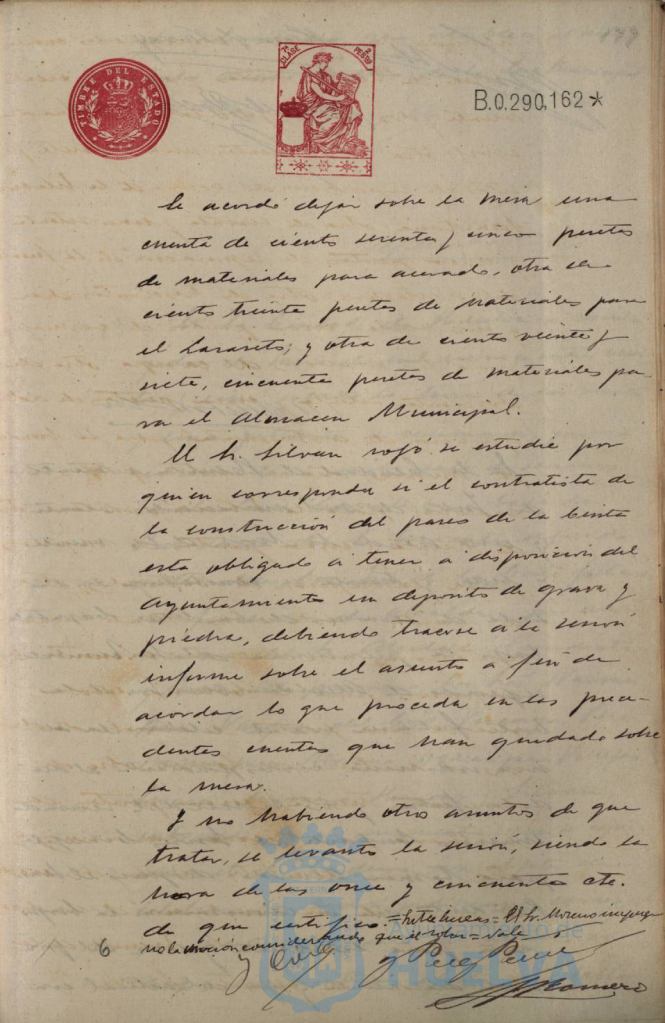 179
TIMBRE DEL ESTADO
7ª CLASE 2 PESETAS
B.0.290,162*
Se acordó dejar sobre la mesa una
cuenta de ciento sesenta y cinco pesetas
de materiales para acerado, otra de
ciento treinta pesetas de materiales para
el Lazareto; y otra de ciento veinte y
siete, cincuenta pesetas de materiales pa
ra el Almacen Municipal.
El Sr. Silván rogó se estudie por
quien corresponda si el contratista de
la construcción del paseo de la Cinta
esta obligado a tener a disposición del
Ayuntamiento un deposito de grava y
piedra, debiendo traerse a la sesión
informe sobre el asunto a fin de
acordar lo que proceda en las prece-
dentes cuentas que han quedado sobre
la mesa.
Y no habiendo otros asuntos de que
tratar, se levanto la sesión, siendo la
hora de las once y cincuenta etc.
de que certifico.=Entre lineas=El Sr. Moreno
no la moción considerando que =vale=
6
y Perez
Romero
Ayuntamiento de
HUELVA